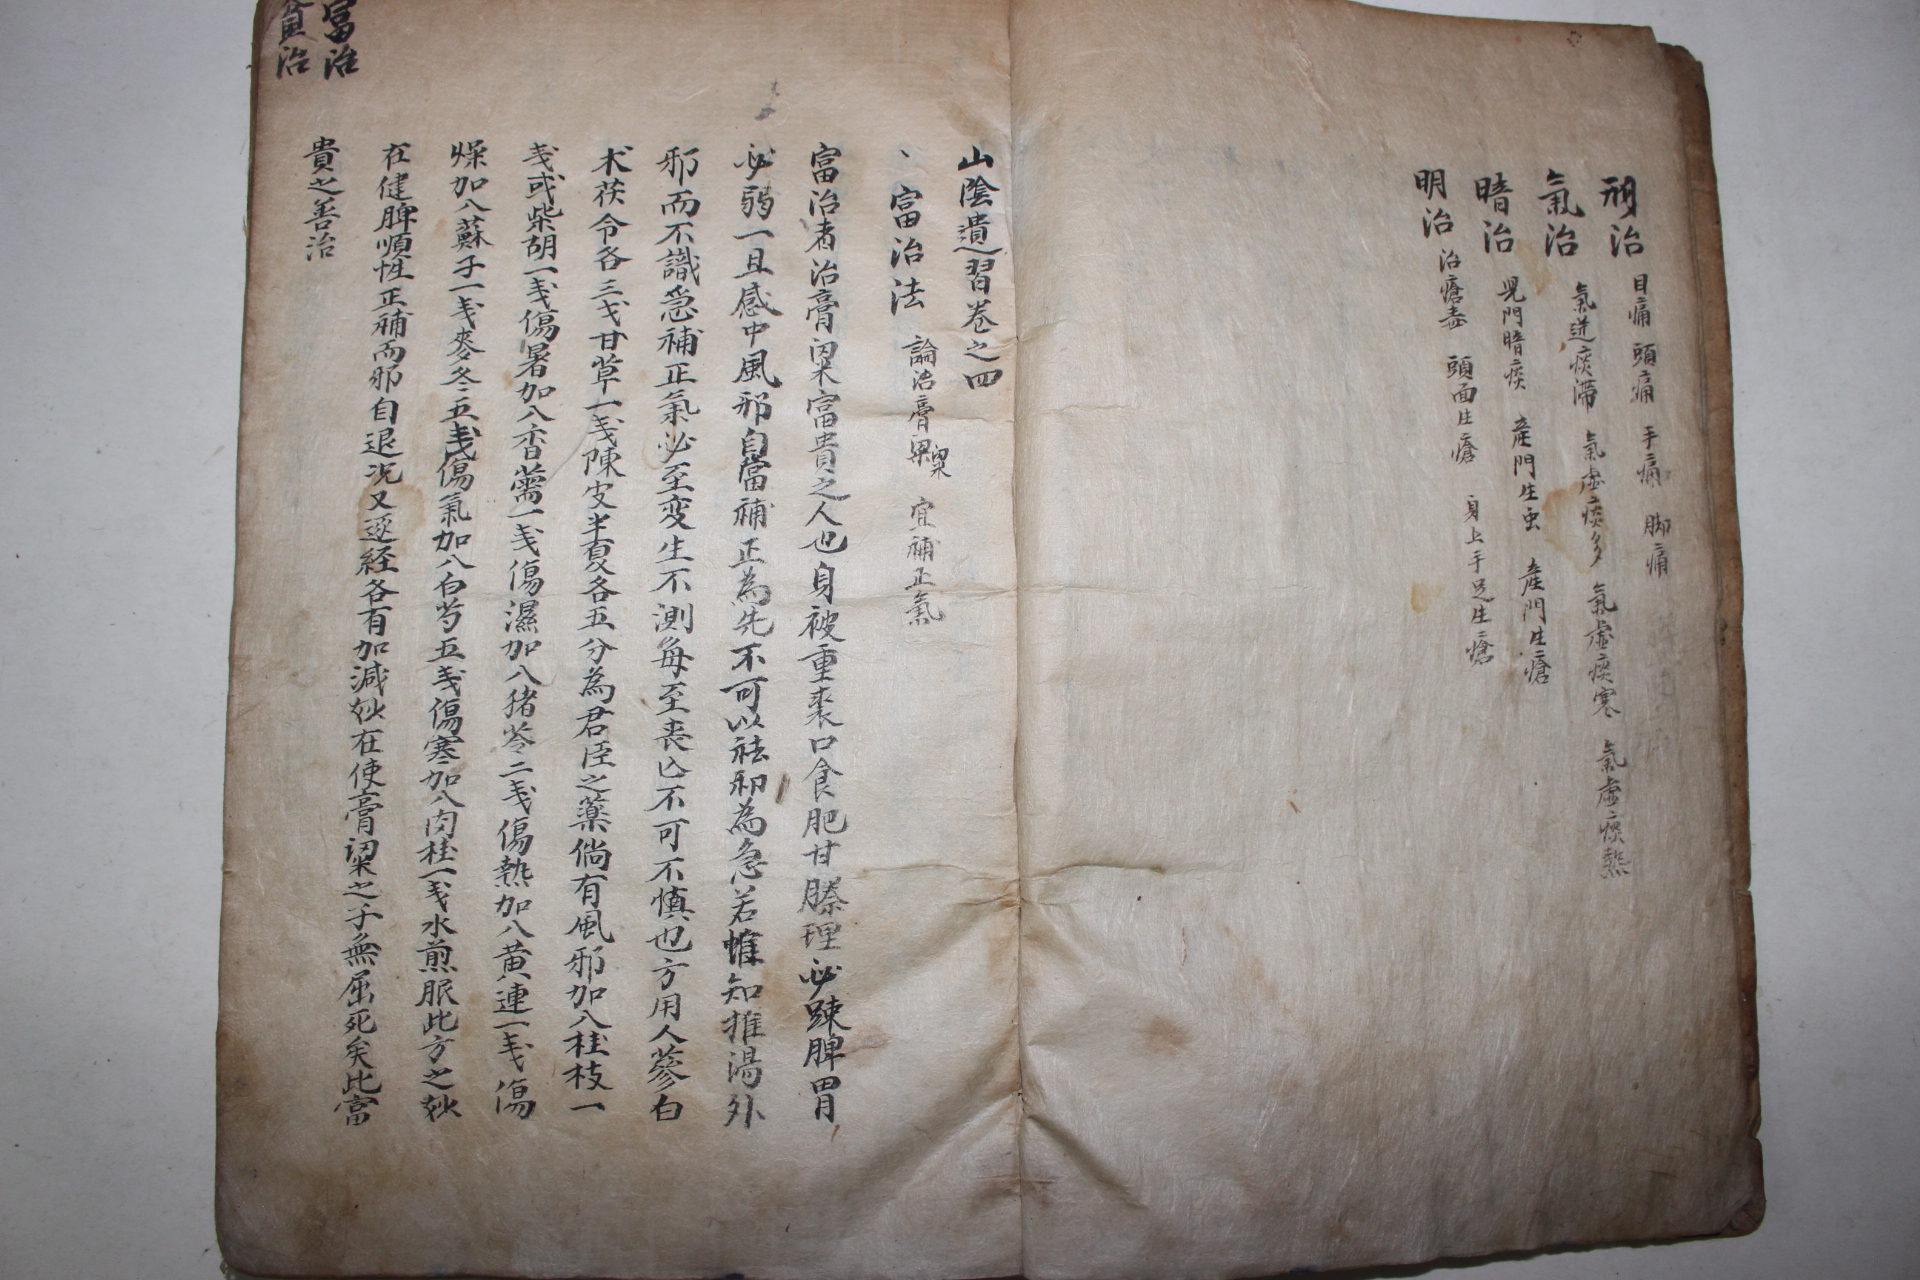 刑治 目痛 頭痛 手痛 脚痛
氣治 氣逆痰滯 氣虛痰多 氣虛痰寒 氣虛痰熱
暗治 児門暗疾 産門生虫 産門生瘡
明治 治瘡毒 頭面生瘡 身上手足生瘡
山陰遺習卷之四
富治法 論治膏粱 宜補正氣
富治者治膏粱富貴之人也身被重裘口食肥甘膝理必踈脾胃
必弱一旦感中風邪自當補正為先不可以祛邪為急若惟知推湯外
邪而不識急補正氣必至変生不測每至丧亡不可不慎也方用人蔘白
术茯令各三戋甘草一戋陳皮半夏各五分為君臣之藥倘有風邪加入桂枝一
戋或柴胡一戋傷暑加入香薷一戋傷濕加入猪苓二戋傷熱加入黄連一戋傷
燥加入蘇子一戋麥冬五戋傷氣加入白芍五戋傷寒加入肉桂一戋水煎服此方之玅
在健脾順性正補而邪自退况又逐経各有加減玅在使膏粱之子無屈死矣此富
貴之善治
富治
貧治